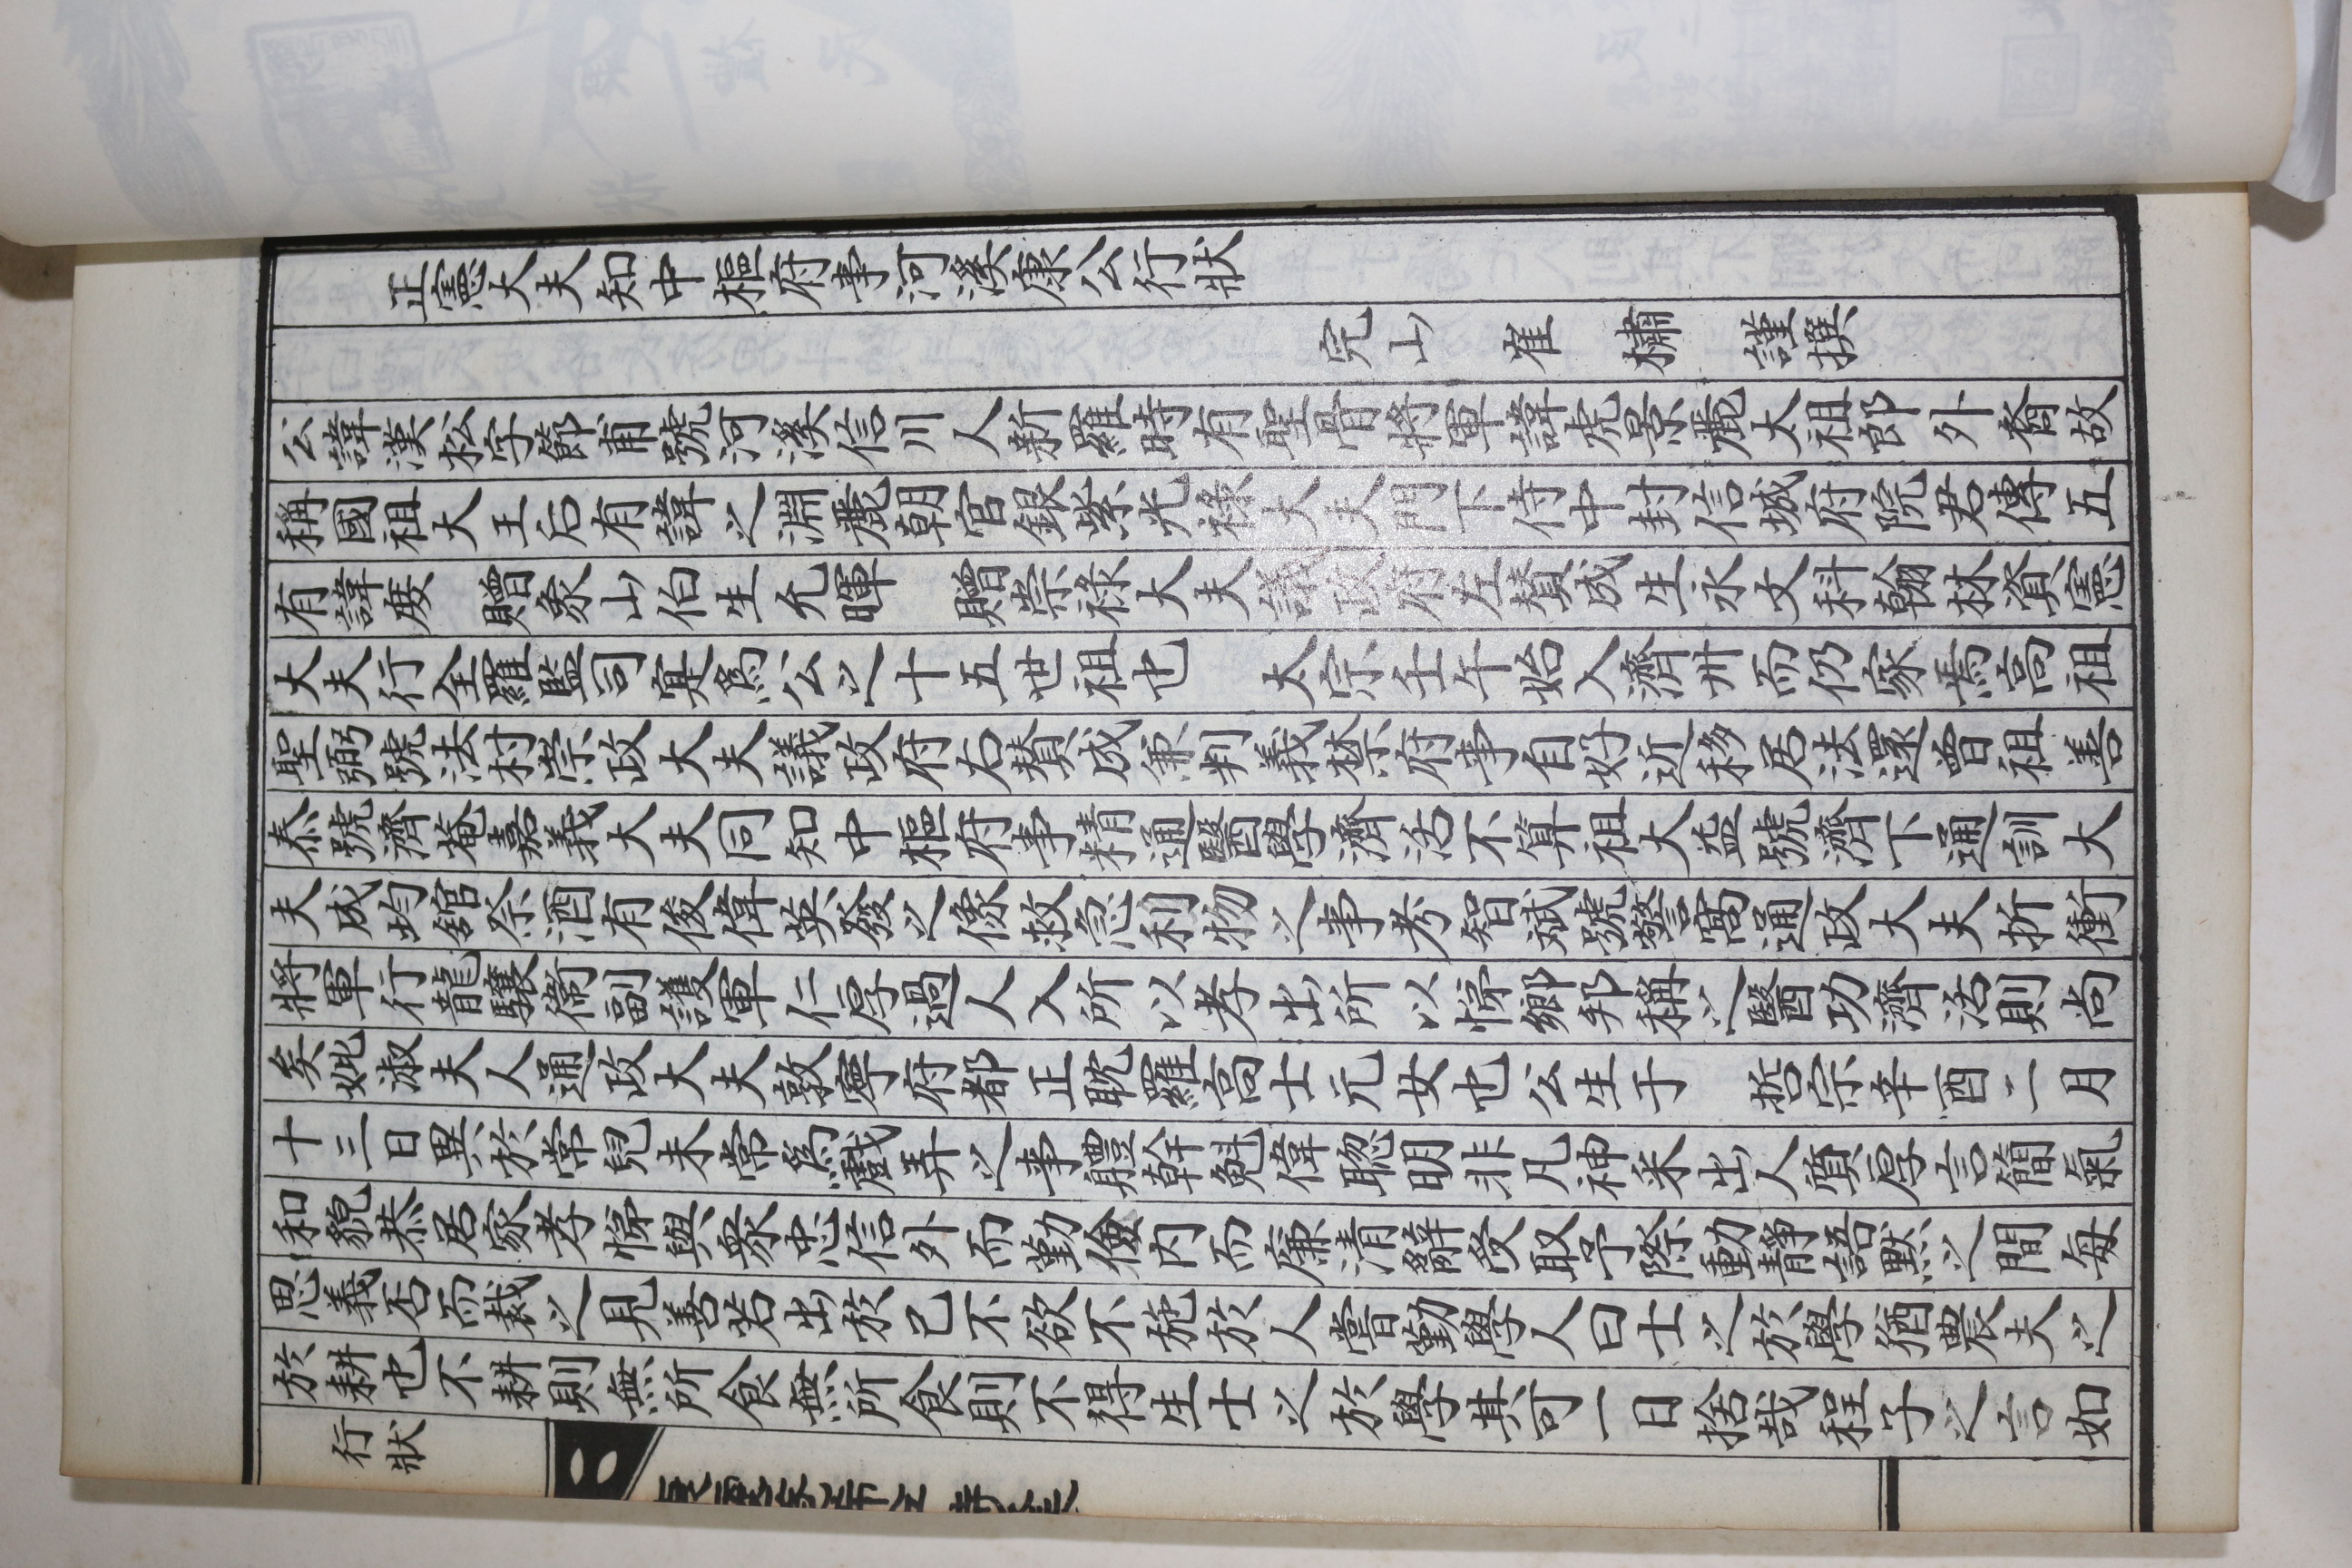 正憲大夫知中樞府事河溪康公行狀
完山 崔 橚 謹撰
公諱漢松字節甫號河溪信川人新羅時有聖骨將軍諱虎景麗太祖郎外裔故
稱國祖大王后有諱之淵麗朝官銀紫光祿大夫門下侍中封信城府院君傳五
有諱度 贈象山伯生允暉 贈崇祿大夫議政府左贊成生永文科翰林資憲
大夫行全羅監司寔爲公之十五世祖也 太宗壬午始入濟州而仍家焉高祖
聖弼號法村崇政大夫議政府右贊成兼判義禁府事自好近移居法還曾祖善
泰號濟菴嘉義大夫同知中樞府事精通醫學濟活不算祖大益號濟下通訓大
夫成均舘祭酒有俊偉英發之像救急利物之事考智斌號警窩通政大夫折衝
將軍行龍驤衛副護軍仁厚過人入所以孝出所以悌鄕邦稱之醫功濟活則尙
矣妣淑夫人通政大夫敦寧府都正耽羅高士元女也公生于 哲宗辛酉二月
十三日異於常兒未常爲戲弄之事軆幹魁偉聰明非凡神采出人質厚言簡氣
和貌恭居家孝悌與衆忠信外而勤儉內而廉清辭受取予際動靜語默之間每
思義否而裁之見善若出於己不欲不施於人嘗勤學人曰士之於學猶農夫之
於耕也不耕則無所食無所食則不得生士之於學其可一日捨哉程子之言如
行狀